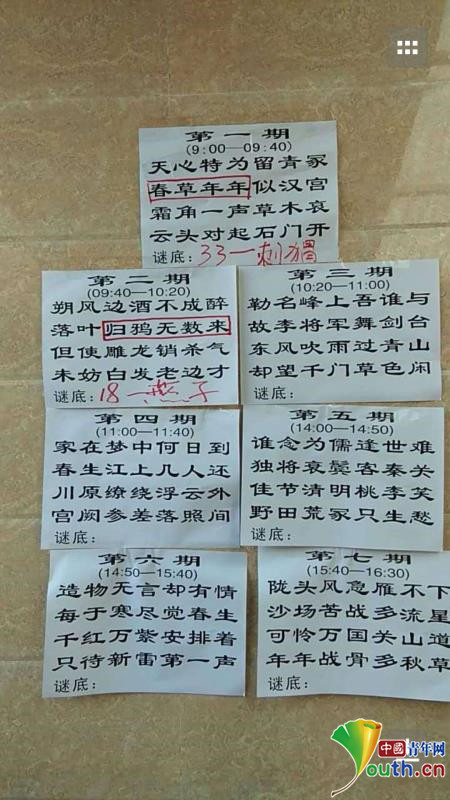 第一期
(9:00—09:40)
天心特为留青冢
春草年年似汉宫
霜角一声草木哀
云头对起石门开
谜底：33一刺猬
第二期
(09:40—10:20)
朔风边酒不成醉
落叶归鸦无数来
但使雕龙销杀气
未妨白发老边才
谜底：18一燕子
第三期
(10:20—11:00)
勒名峰上吾谁与
故李将军舞剑台
东风吹雨过青山
却望千门草色闲
谜底：
第四期
(11:00—11:40)
家在梦中何日到
春生江上几人还
川原缭绕浮云外
宫阙参差落照间
谜底：
第五期
(14:00—14:50)
谁念为儒逢世难
独将衰鬓客秦关
佳节清明桃李笑
野田荒冢只生愁
谜底：
第六期
(14:50—15:40)
造物无言却有情
每于寒尽觉春生
千红万紫安排着
只待新雷第一声
谜底：
第七期
(15:40—16:30)
陇头风急雁不下
沙场苦战多流星
可怜万国关山道
年年战骨多秋草
谜底：
中國青年网
Youth.cn